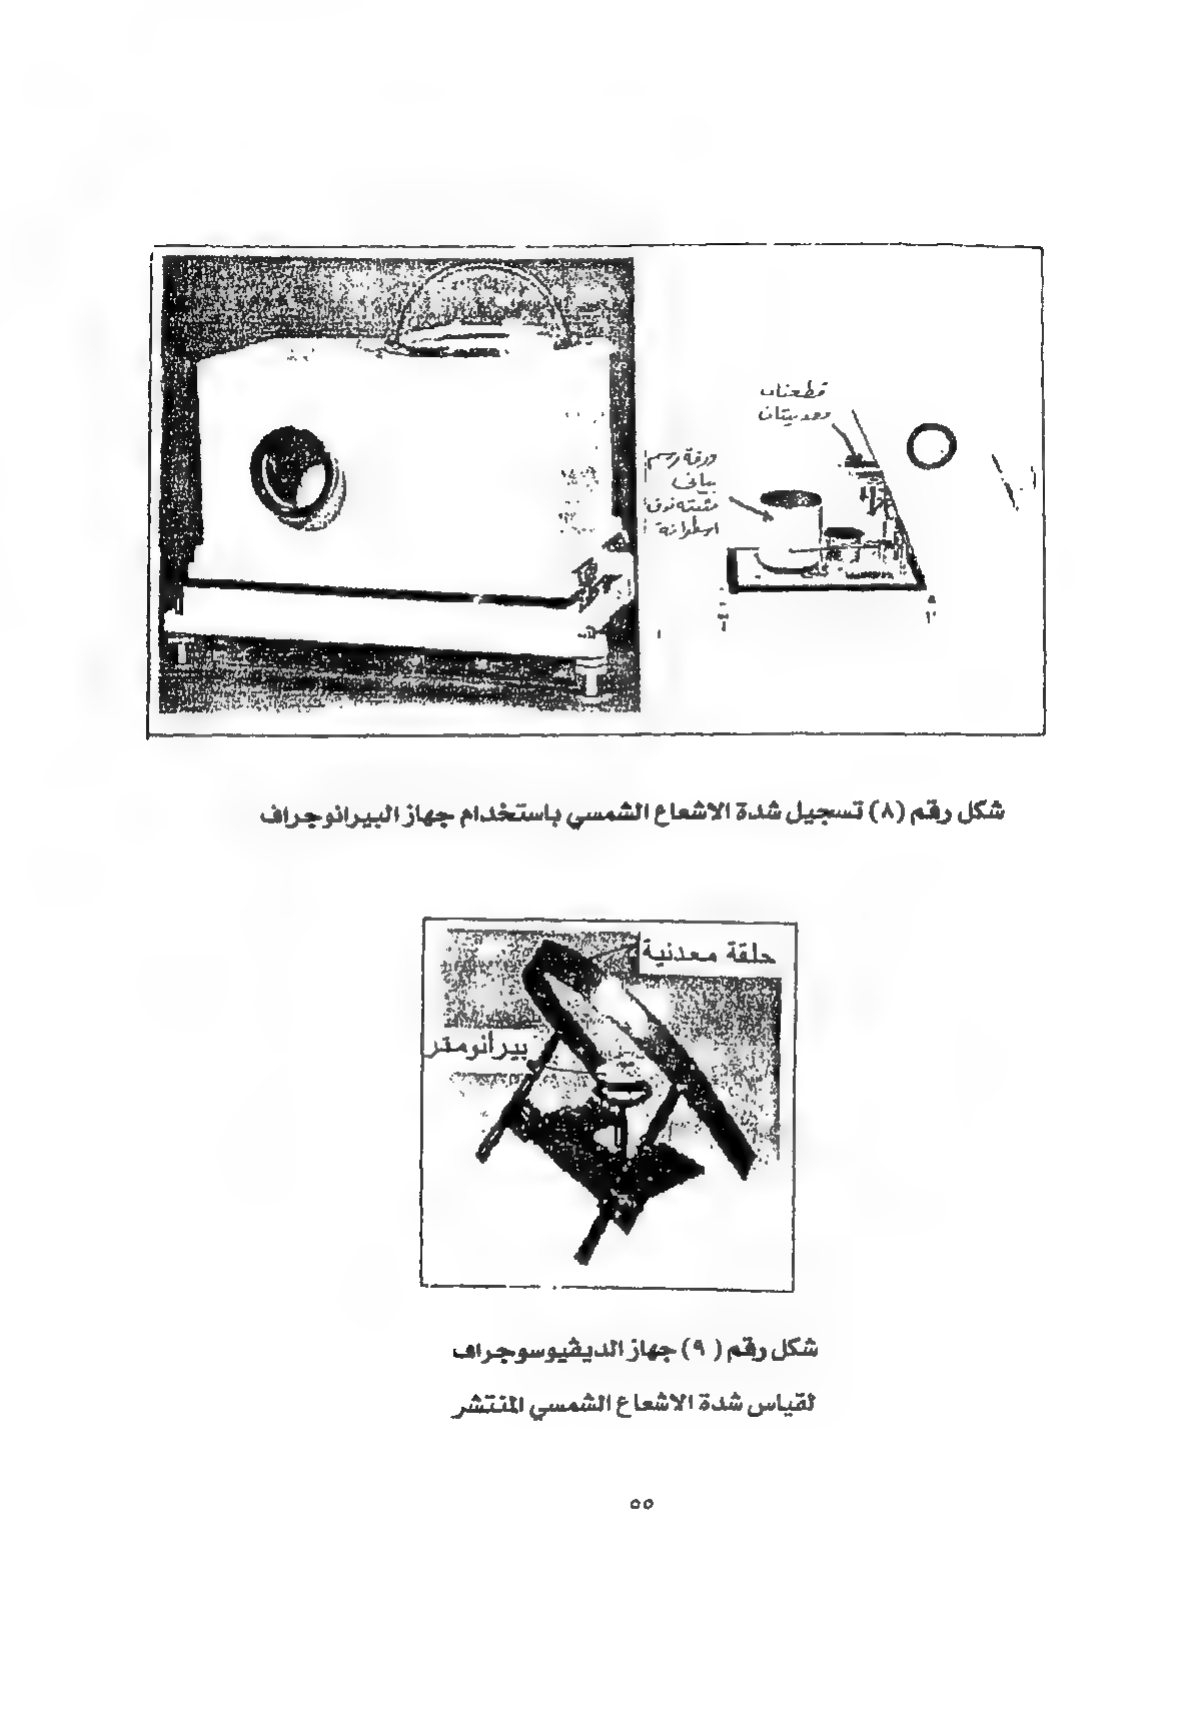 قطعتان
معدنيتان
ورقة رسم
بياني
مثبته فوق
اسطوانة
شكل رقم (٨) تسجيل شدة الاشعاع الشمسي باستخدام جهاز البيرانوجراف
حلقة معدنية
بيرانومتر
شكل رقم ( ٩) جهاز الديڤيوسوجراف
لقياس شدة الاشعاع الشمسي المنتشر
٥٥